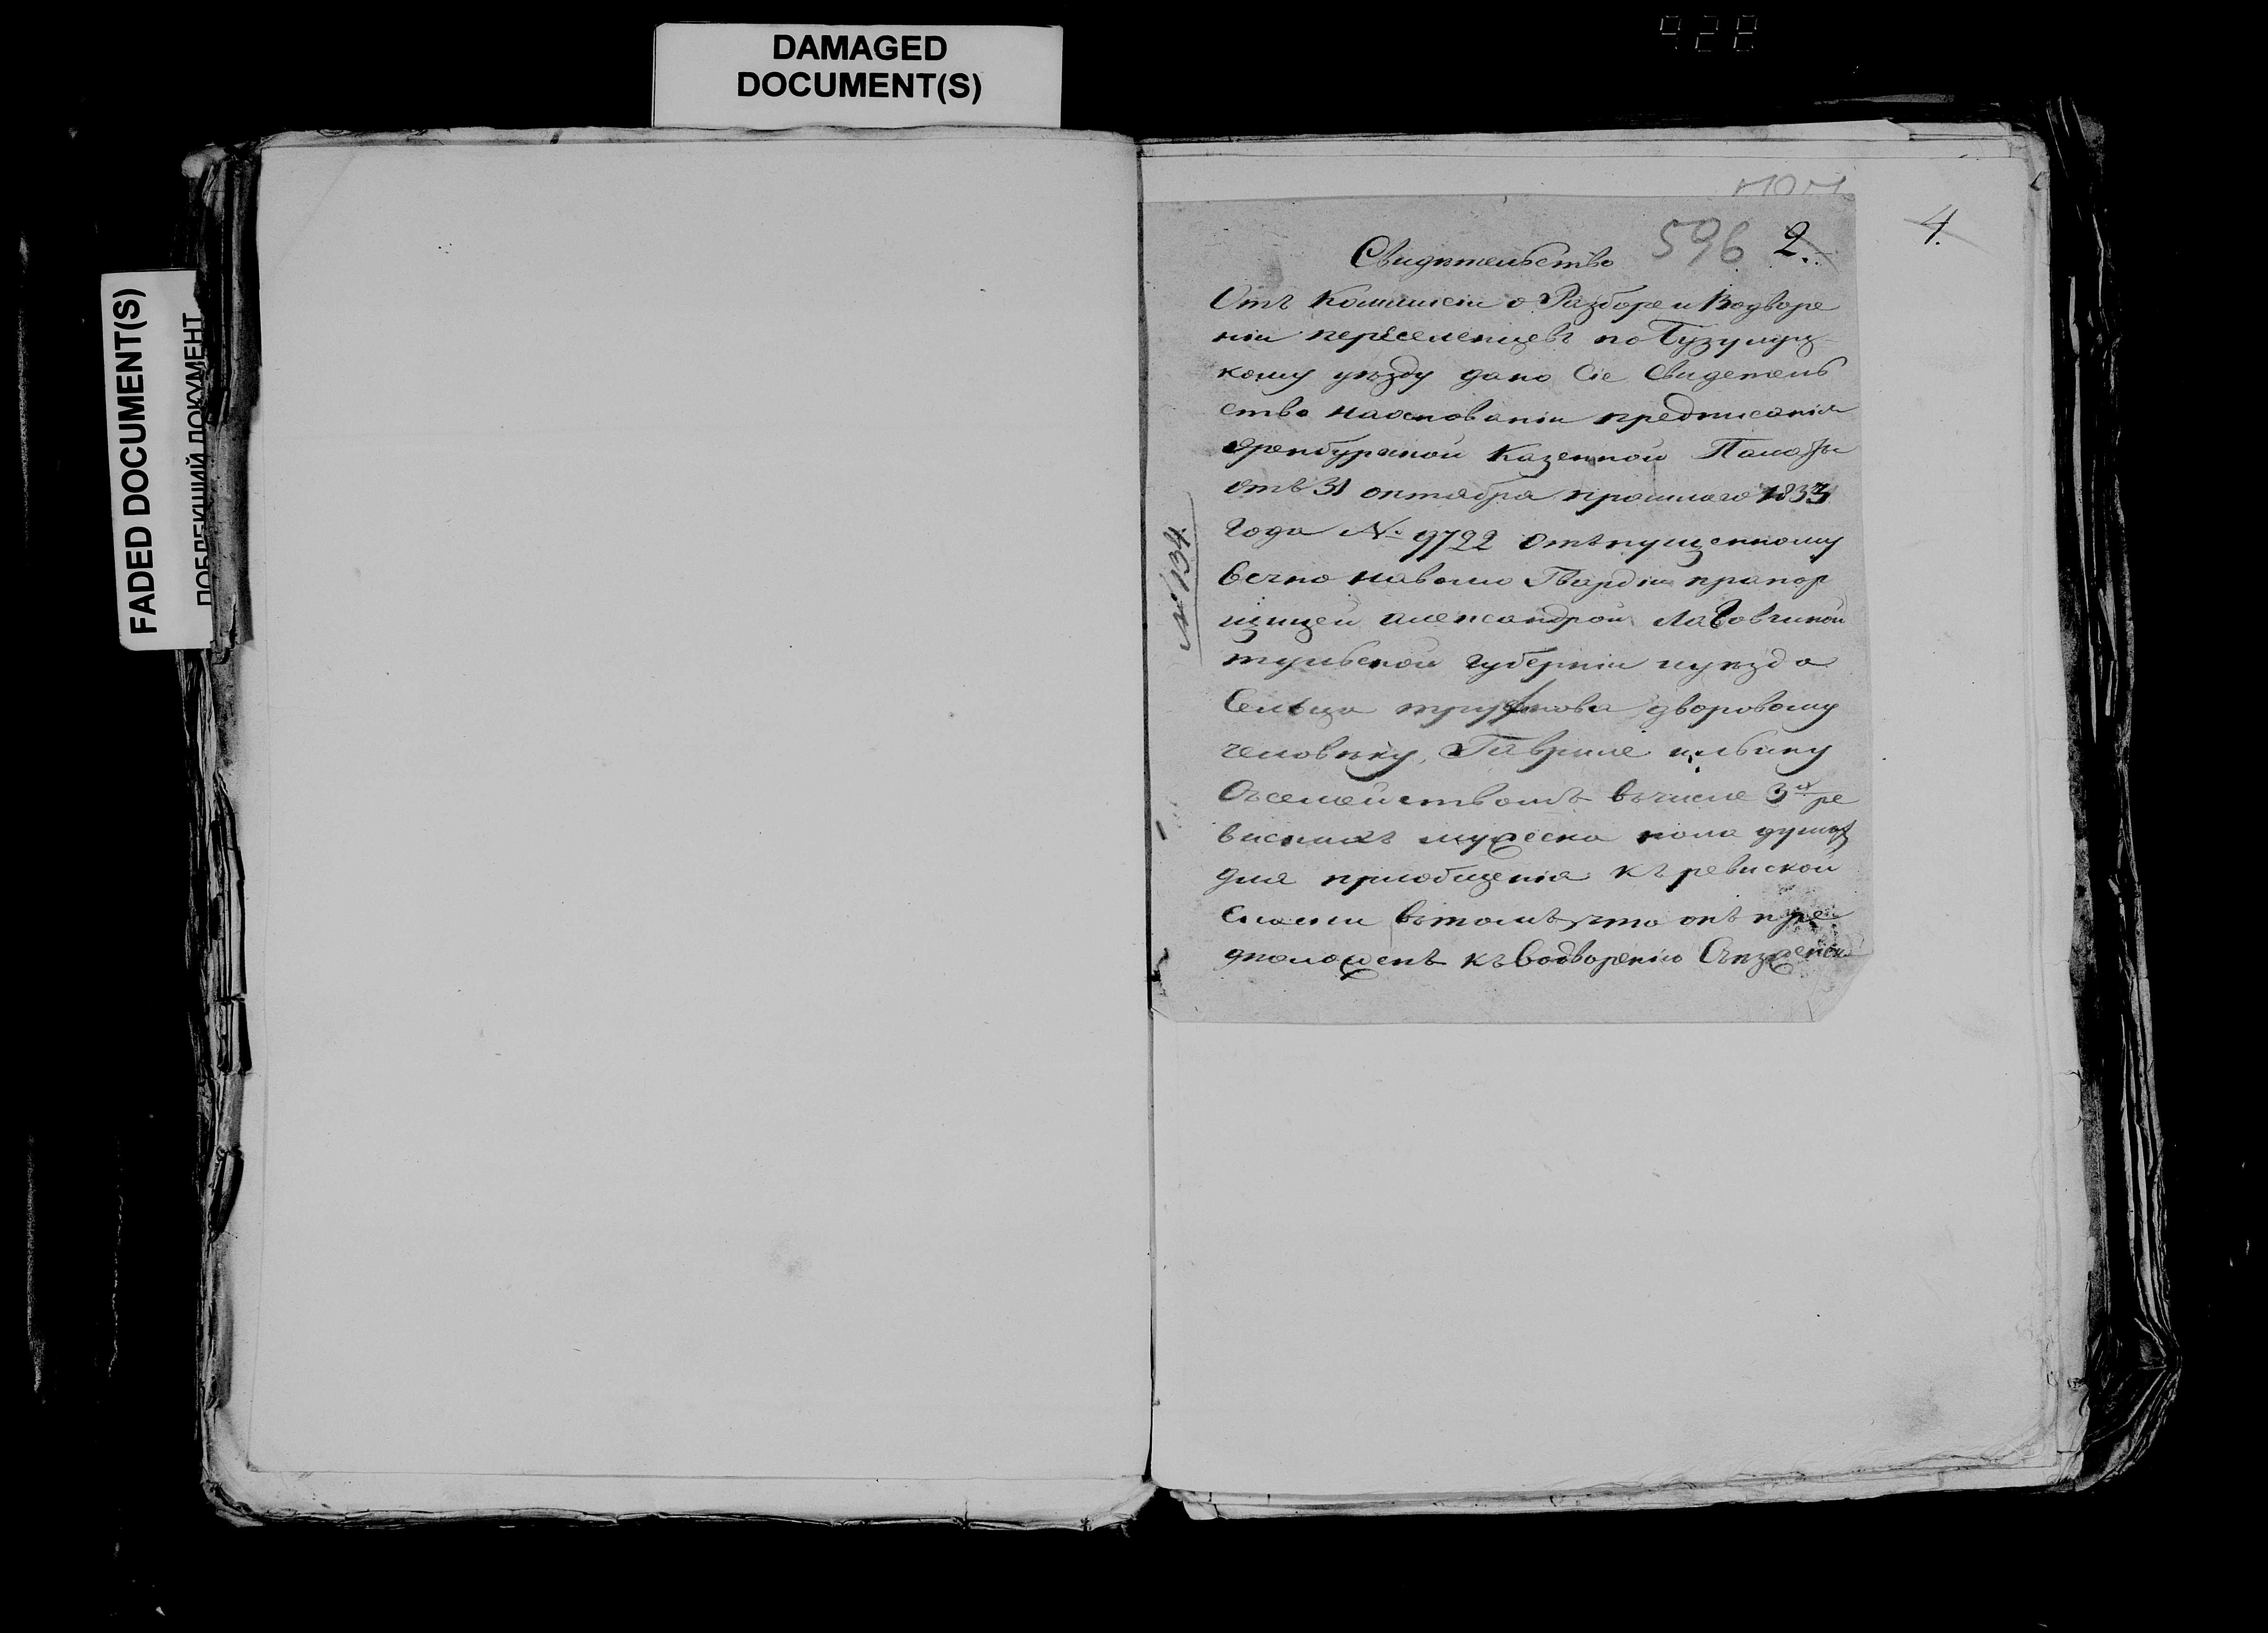 DAMAGED
DOCUMENT(S)
FADED DOCUMENT(S)
ПОБЛЕКШИЙ ДОКУМЕНТ
4.
596 2.
Свидѣтельство
Отъ Коммисіи о Разборе и Водворе
ніи переселенцевъ по Бузулуц-
кому уѣзду дано Сіе Свидетель
ство наоснованіи предписанія
Оренбургской Казенной Палаты
отъ 31 октября прошлаго 1833
года № 9722 отпущенному
вечно наволю Гвардіи прапор
щицей Александрой
тульской губерніи иуѣзда
Сельца дворовому
человѣку, Гавриле ильину
Съсемействомъ въчисле 3х ре
виских мужеска пола душъ
для приобщенія къ ревиской
Скаски втомъ, что онъ пре
дположенъ къ водворенію
№ 134.